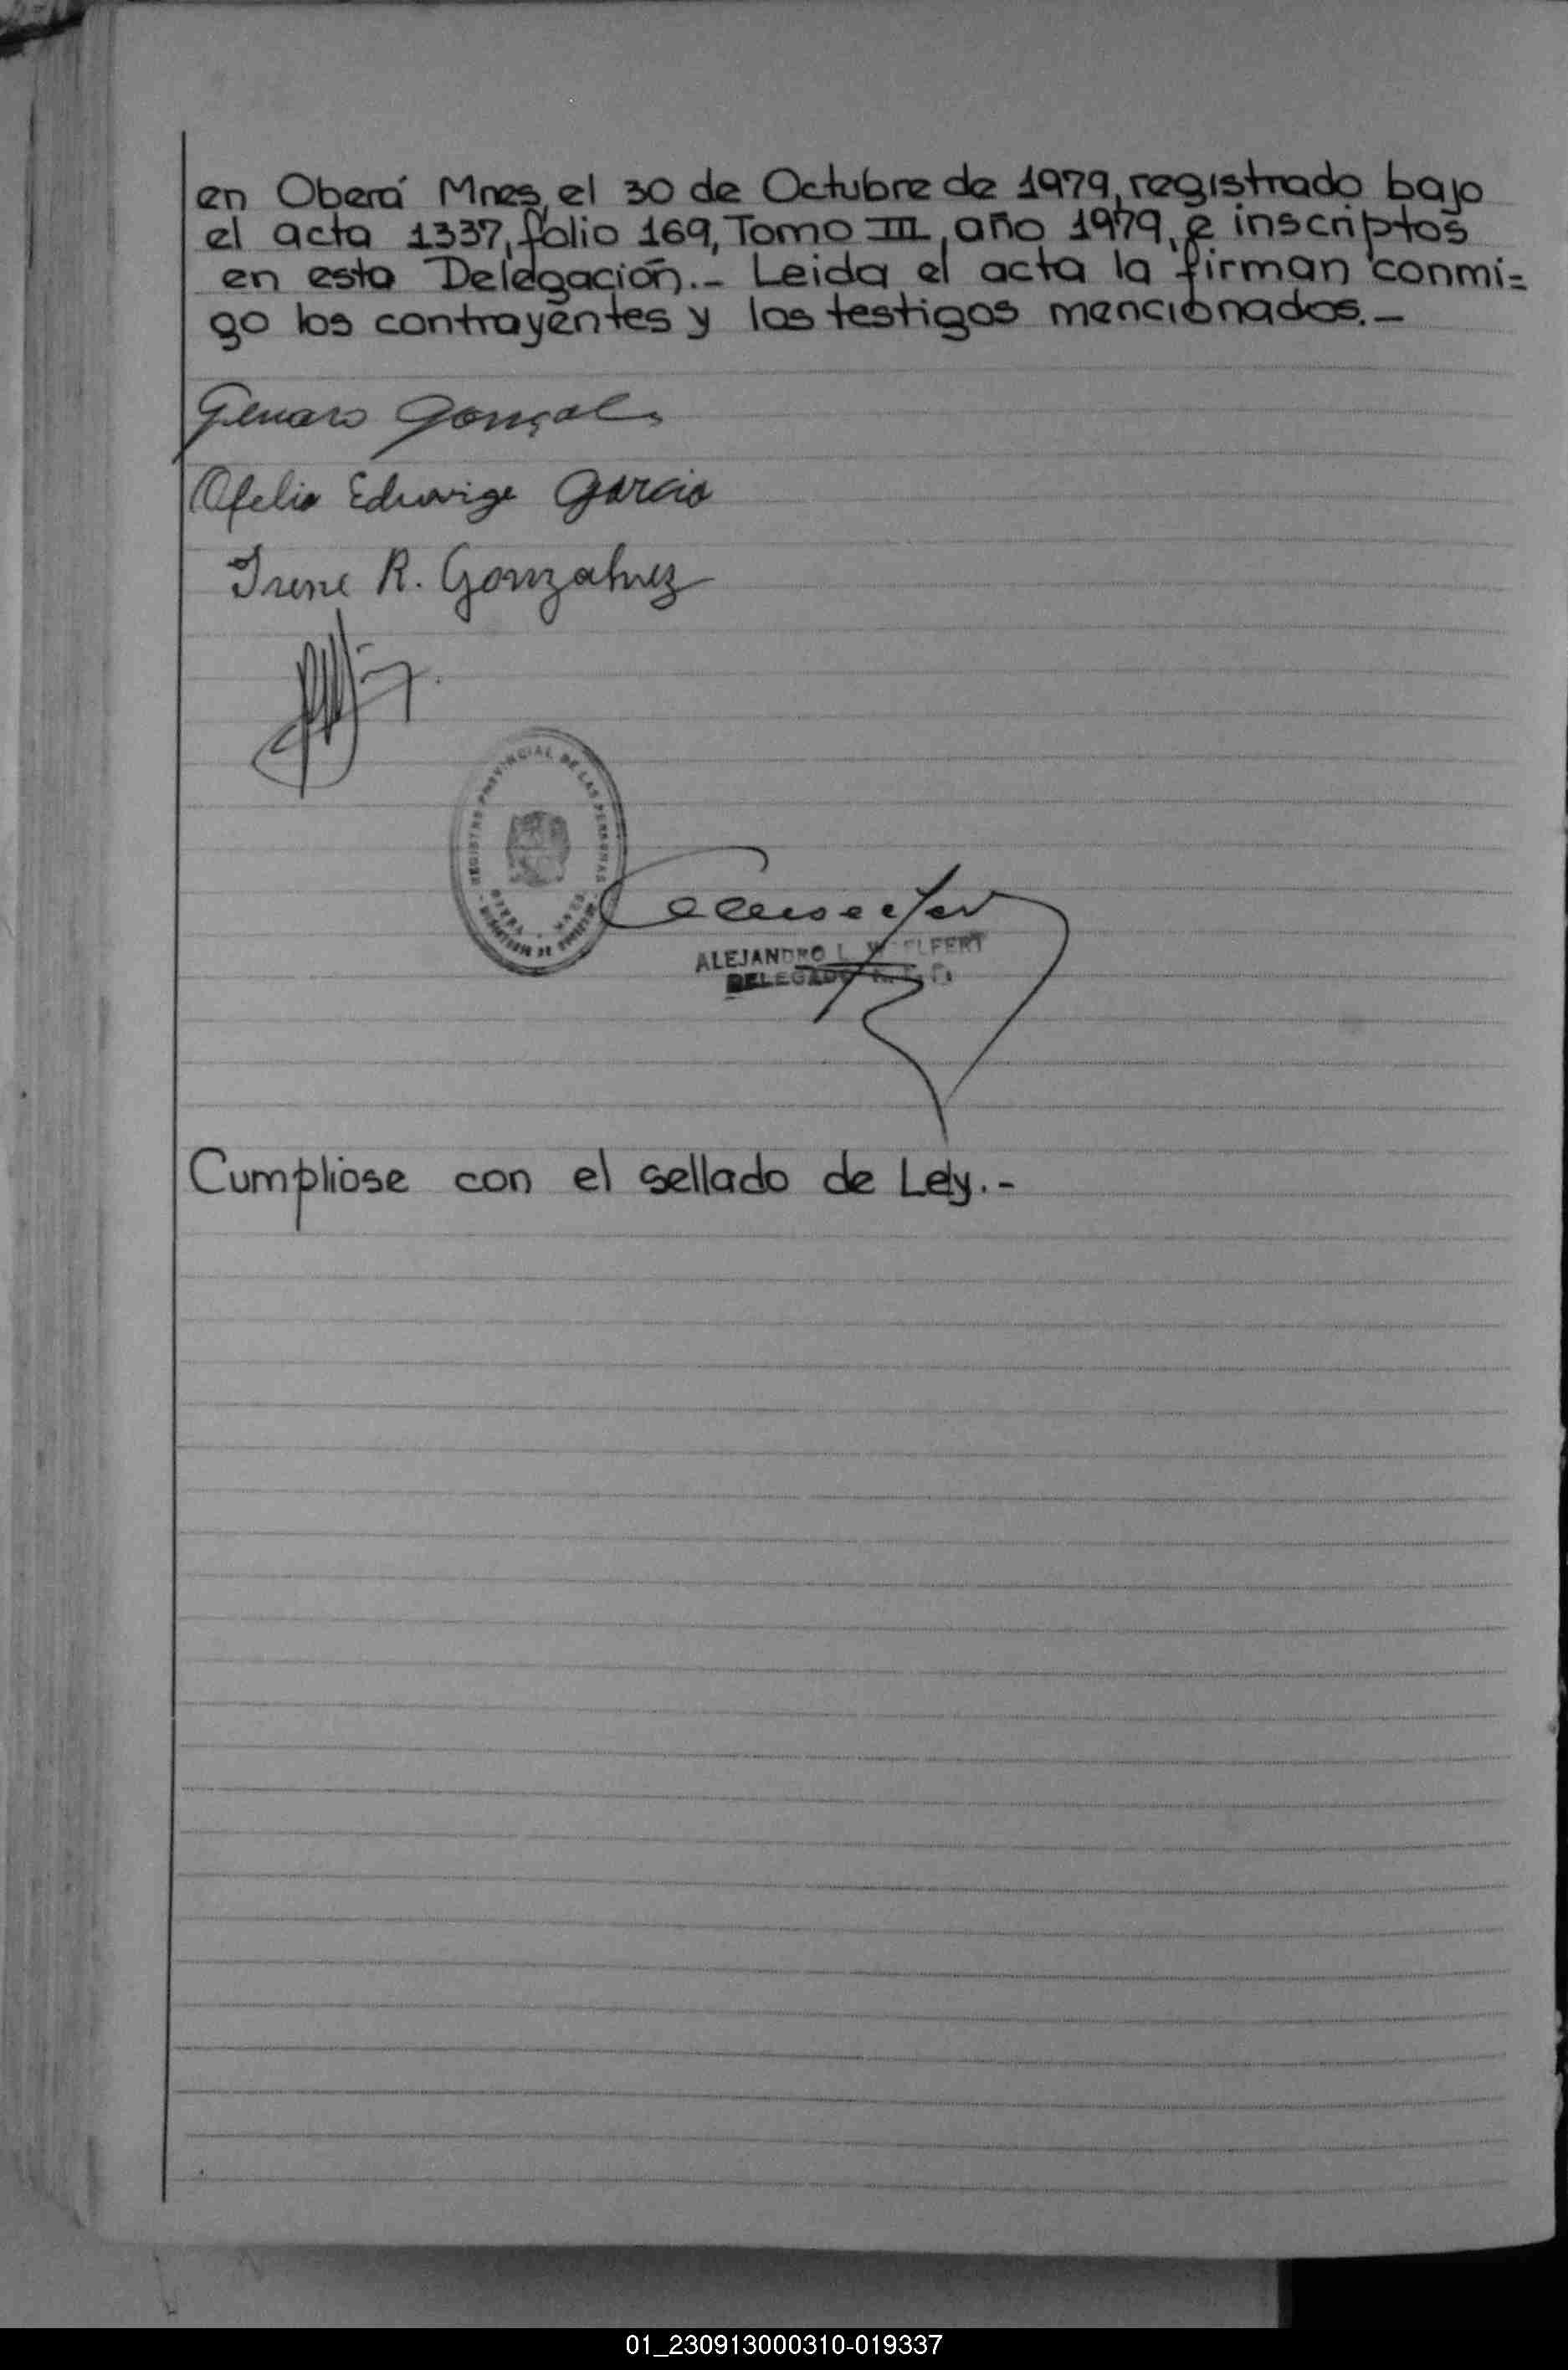 en Oberá Mnes, el 30 de Octubre de 1979, registrado bajo
el acta 1337, folio 169, Tomo III, año 1979, e inscriptos
en esta Delegación.- Leida el acta la firman conmi=
go los contrayentes y los testigos mencionados.-
Genaro
Ofelia Eduvige Garcia
Irene R. Gonzalvez
REGISTRO PROVINCIAL DE LAS PERSONAS
ALEJANDRO L.
DELEGADO
Cumpliose con el sellado de Ley.-
01_230913000310-019337